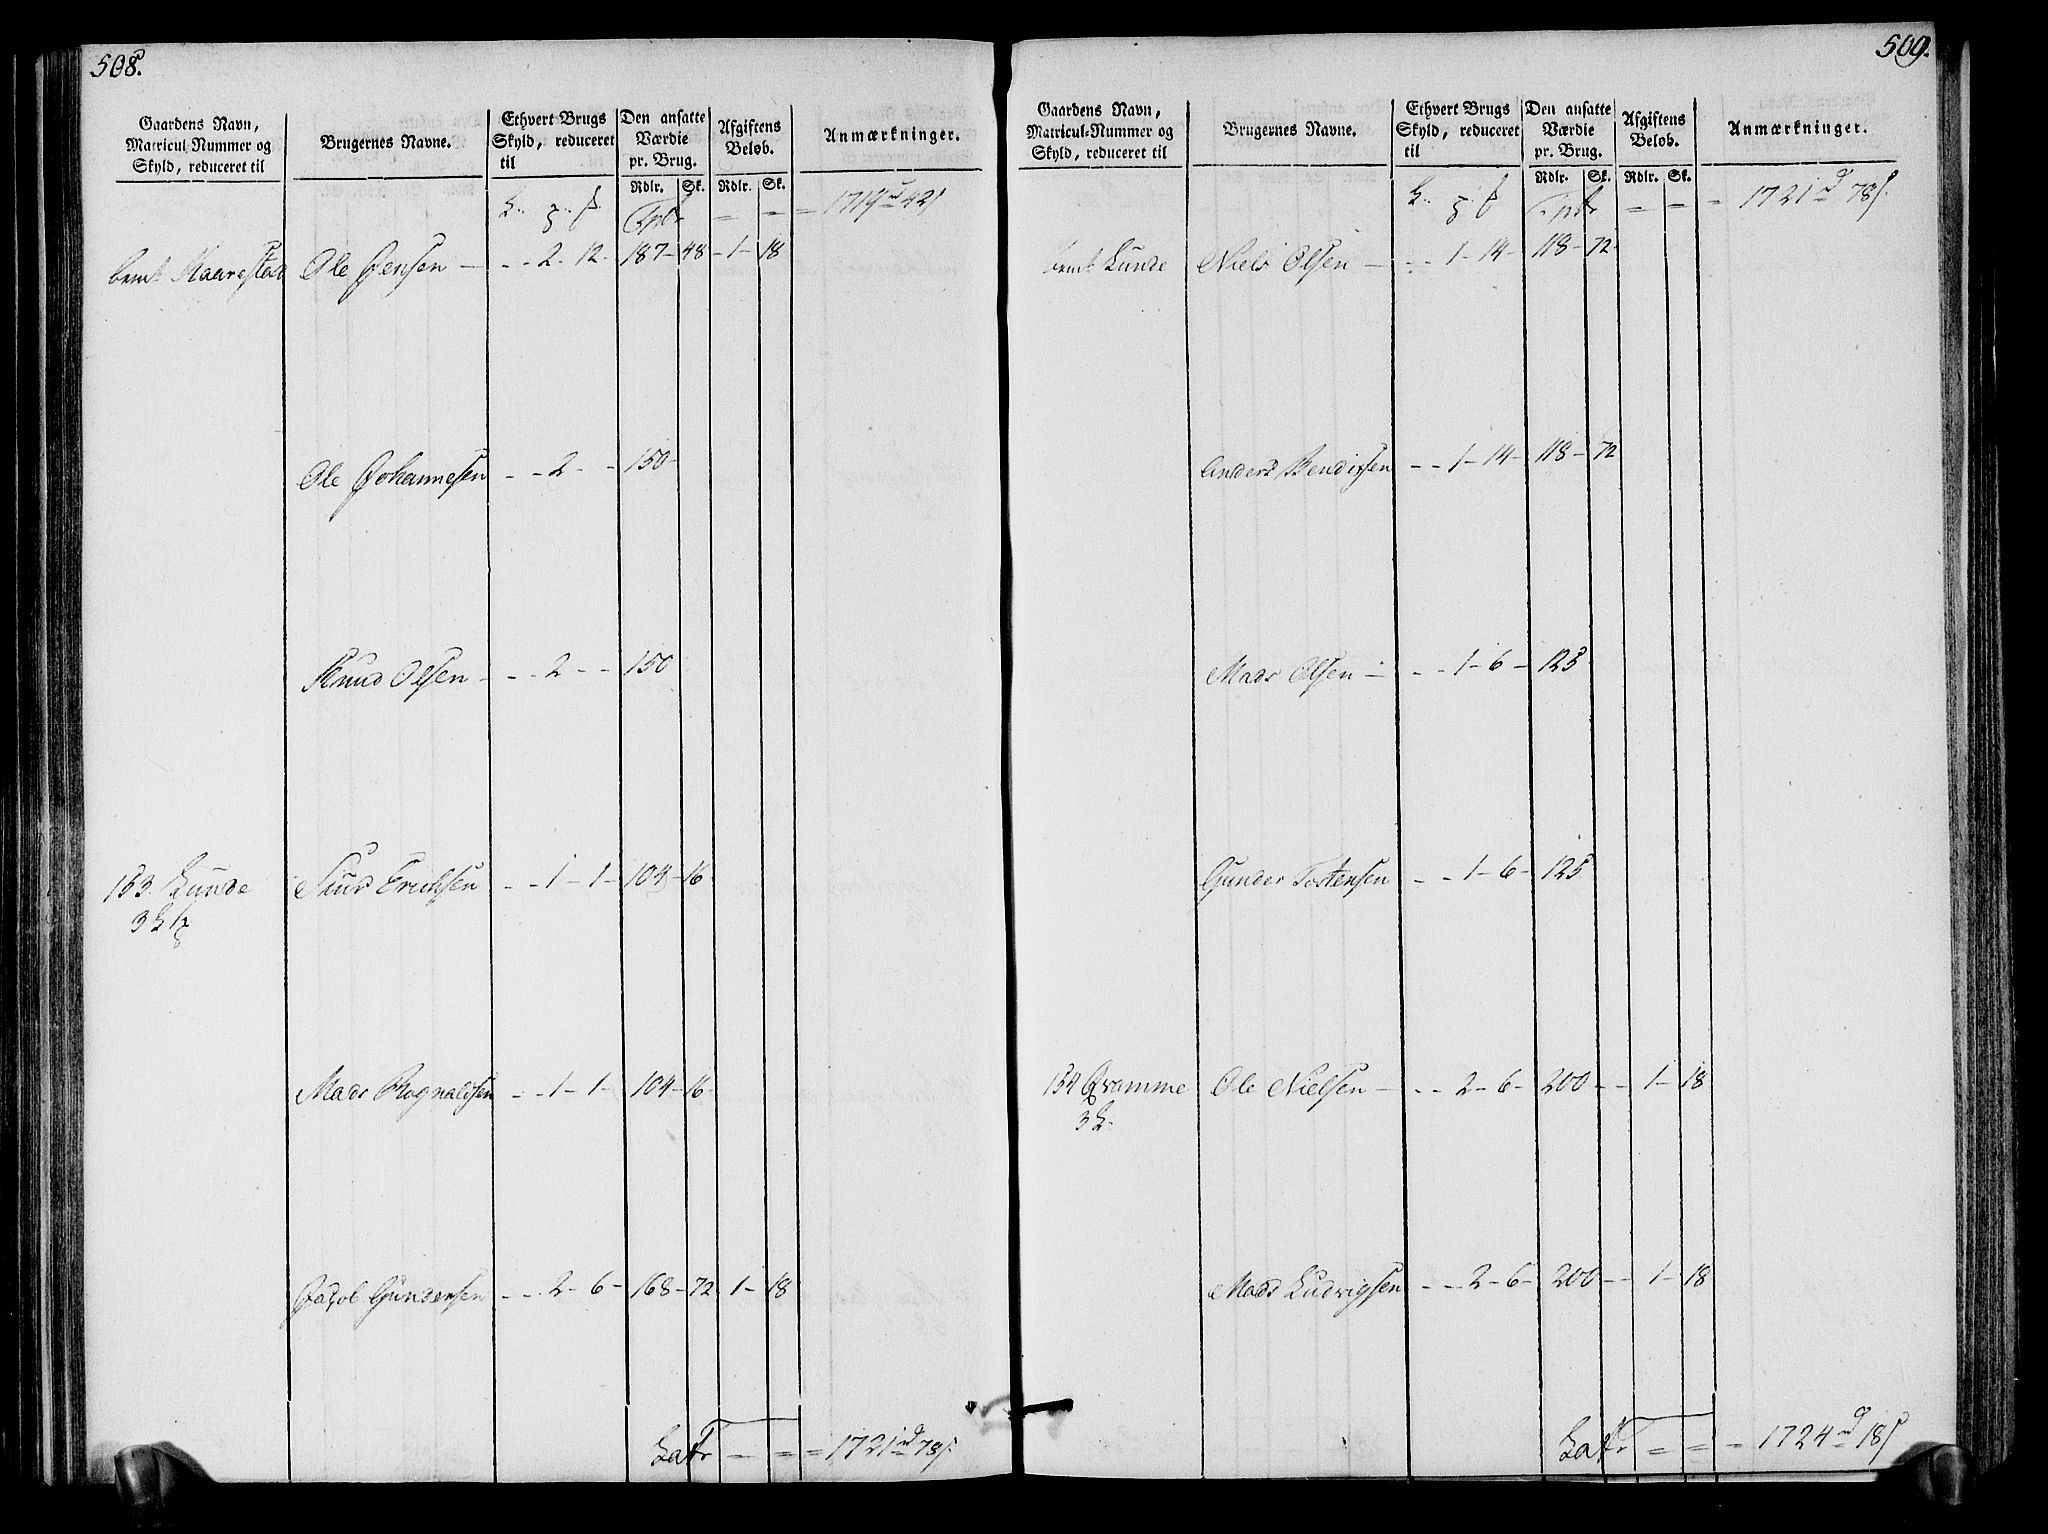 508.
Gaardens Navn, Matricul-Nummer og Skyld, reduceret til
Brugernes Navne.
Ethvert Brugs Skyld, reduceret til
Den ansatte Værdie pr. Brug.
Afgiftens Beløb.
Anmærkninger.
Rdlr. Sk. Rdlr. Sk.
Tpbr = = = 1719 rd 42 s
bemt Kaarestad Ole Jensen - - - 2 - 12 - 187 - 48 - 1 - 18
Ole Johannesen - - 2 - - 150 -
Knud Olsen - - - 2 - - 150
153. Lunde Siur Erichsen - - 1 - 1 - 104 - 16
3 L 1
Mads Rognaldsen - - 1 - 1 - 104 - 16
Jacob Gundersen - - 2 - 6 - 168 - 72 1 - 18
Latr - = = 1721 rd 78 s.
509.
Gaardens Navn, Matricul-Nummer og Skyld, reduceret til
Brugernes Navne.
Ethvert Brugs Skyld, reduceret til
Den ansatte Værdie pr. Brug.
Afgiftens Beløb.
Anmærkninger.
Rdlr. Sk. Rdlr. Sk.
Tpbr = = = 1721 rd 78 s.
bemt Lunde Niels Olsen - - - 1 - 14 - 118 - 72
Anders Bendixsen - - 1 - 14 - 118 - 72
Mads Olsen - - - 1 - 6 - 125
Gunder Tostensen - - 1 - 6 - 125
154 Qvamme Ole Nielsen - - - 2 - 6 - 200 - - 1 - 18
3 L.
Mads Ludvigsen - - 2 - 6 - 200 - - 1 - 18
Latr = = - 1724 rd 18 s